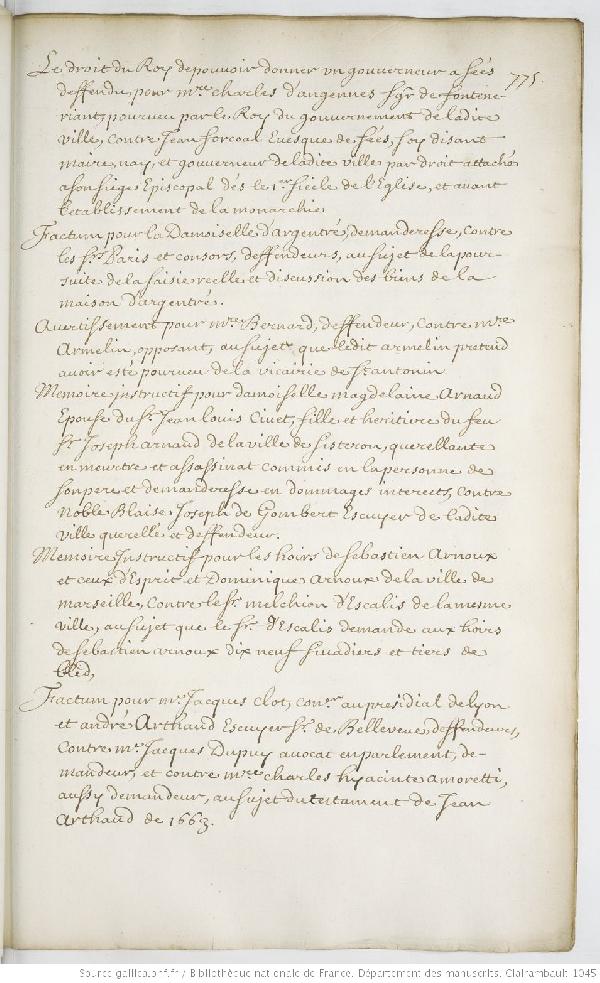 Le droit du Roy de pouvoir donner un gouverneur a sées
775.
deffendu, pour mre charles d'angennes sgr de fontene-
riant, pourveu par le Roy du gouvernement de ladite
ville, contre Jean forcoal Evesque de sées, soy disant
maire, nay, et gouverneur de ladite ville, par droit attaché
a son siege Episcopal dés le 1er siécle de l'Eglise, et avant
l'etablissement de la monarchie.
Factum pour la Damoiselle d'argentré, demanderesse, contre
les srs Paris et consors, deffendeurs, au sujet de la pour-
suite de la saisie reelle et discussion des biens de la
maison d'argentré.
Avertissement pour mre Bernard, deffendeur, contre mre
Armelin, opposant, au sujet que ledit armelin pretend
avoir esté pourveu de la vicairie de St antonin
Memoire instructif pour damoiselle magdelaine Arnaud
Epouse du sr Jean louis Civet, fille et heritiere du feu
sr Joseph arnaud de la ville de sisteron, querellante
en meurtre et assassinat commis en la personne de
son pere et demanderesse en dommages interets, contre
Noble Blaise Joseph de Gombert Escuyer de ladite
ville querellé et deffendeur.
Memoire Instructif pour les hoirs de sebastien Arnoux
et ceux d'Esprit et Dominique Arnoux de la ville de
marseille, contre le sr melchion d'Escalis de la mesme
ville, au sujet que le sr d'Escalis demande aux hoirs
de sebastien arnoux dix neuf sivadiers et tiers de
bled,
Factum pour mr Jacques clot, conr au presidial de lyon
et andré Arthaud Escuyer sr de Belleveue, deffendeurs,
contre mr Jacques Dupuy avocat en parlement, de-
mandeur, et contre mre charles hyacinte amoretti,
aussy demandeur, au sujet du testament de Jean
Arthaud de 1663.
Source gallica.bnf.fr / Bibliothèque nationale de France. Département des manuscrits. Clairambault 1045